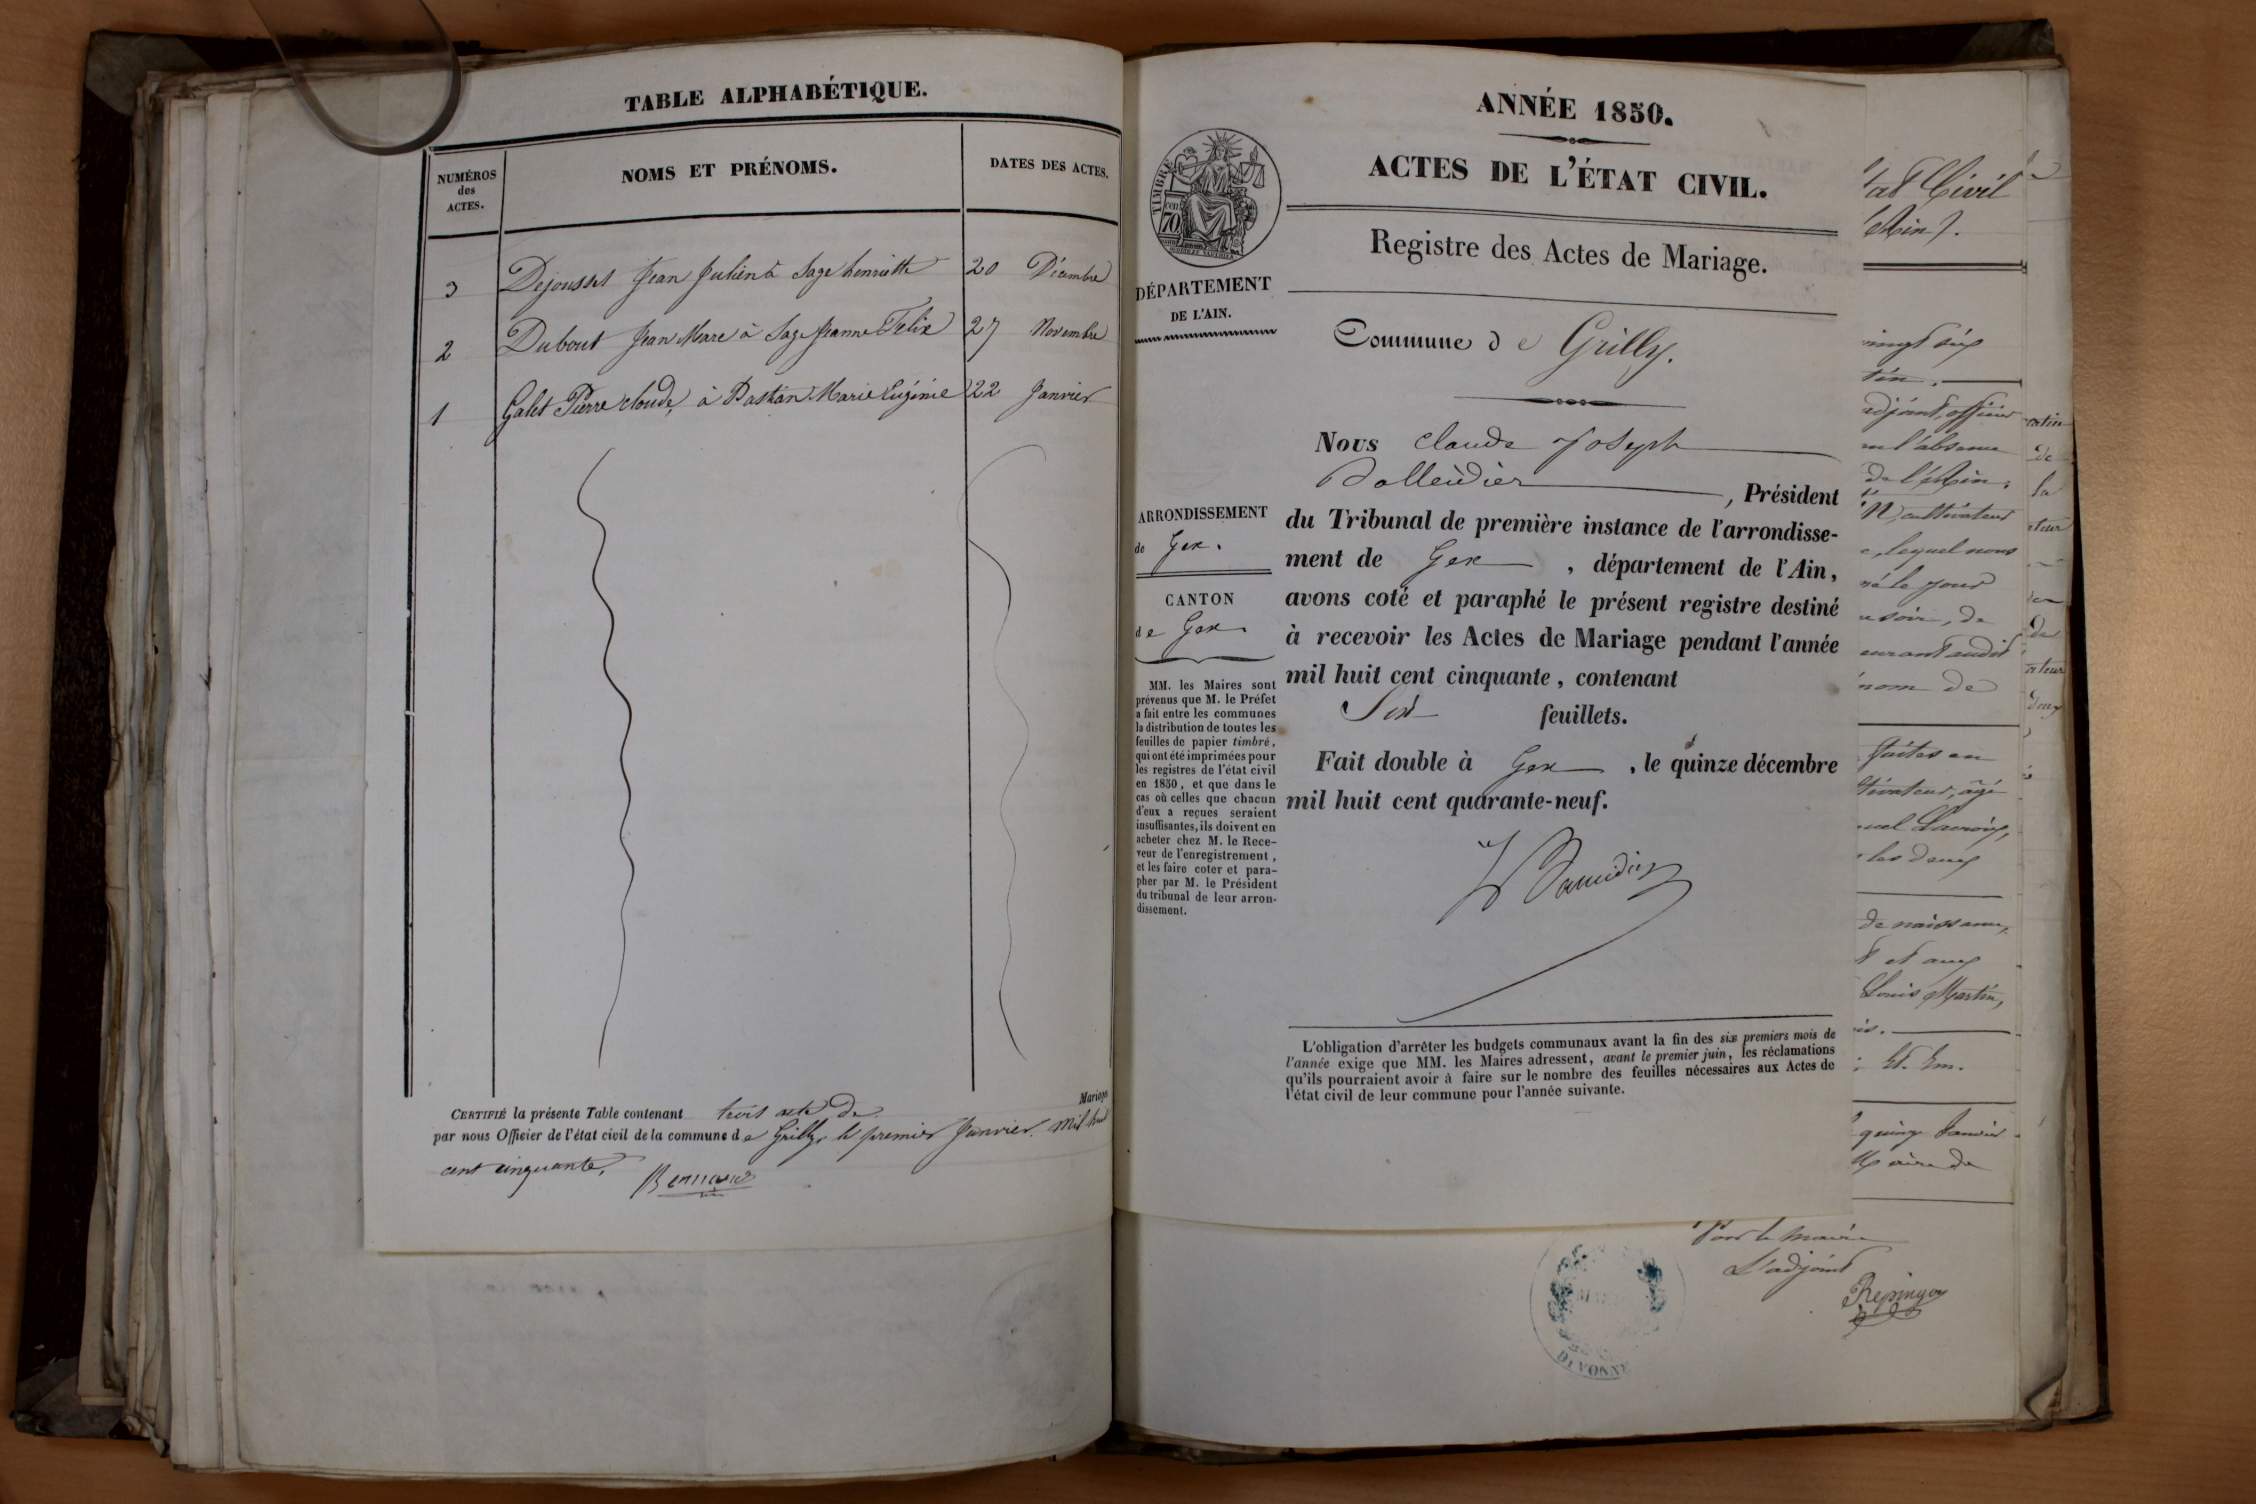 TABLE ALPHABÉTIQUE.
NUMÉROS
des
ACTES.
NOMS ET PRÉNOMS.
DATES DES ACTES.
3 Dejousset Jean Julien à Sage henriette 20 Décembre
2 Dubout Jean Marc à Sage Jeanne Felix 27 Novembre
1 Galet Pierre claude, à Bastian Marie Eugénie 22 Janvier
Mariage
CERTIFIÉ la présente Table contenant trois acte de
par nous Officier de l'état civil de la commune de Grilly le premier Janvier. Mil huit
cent cinquante,
ANNÉE 1850.
ACTES DE L'ÉTAT CIVIL.
TIMBRE
70
Registre des Actes de Mariage.
DÉPARTEMENT
DE L'AIN.
Commune de Grilly.
Nous Claude Joseph
, Président
du Tribunal de première instance de l'arrondisse-
ment de Gex , département de l'Ain,
avons coté et paraphé le présent registre destiné
à recevoir les Actes de Mariage pendant l'année
mil huit cent cinquante, contenant
Six feuillets.
Fait double à Gex , le quinze décembre
mil huit cent quarante-neuf.
ARRONDISSEMENT
de Gex.
CANTON
de Gex
MM. les Maires sont
prévenus que M. le Préfet
a fait entre les communes
la distribution de toutes les
feuilles de papier timbré,
qui ont été imprimées pour
les registres de l'état civil
en 1850, et que dans le
cas où celles que chacun
d'eux a reçues seraient
insuffisantes, ils doivent en
acheter chez M. le Rece-
veur de l'enregistrement,
et les faire coter et para-
pher par M. le Président
du tribunal de leur arron-
dissement.
L'obligation d'arrêter les budgets communaux avant la fin des six premiers mois de
l'année exige que MM. les Maires adressent, avant le premier juin, les réclamations
qu'ils pourraient avoir à faire sur le nombre des feuilles nécessaires aux Actes de
l'état civil de leur commune pour l'année suivante.
Civil
l'absence
de l'Ain,
cultivateur
lequel nous
le jour
soir, de
nom de
faites en
âgé
Lacroix,
les deux
de naissance,
et aux
Louis Martin,
quinze Janvier
Maire de
Pour le maire
L'adjoint
DIVONNE